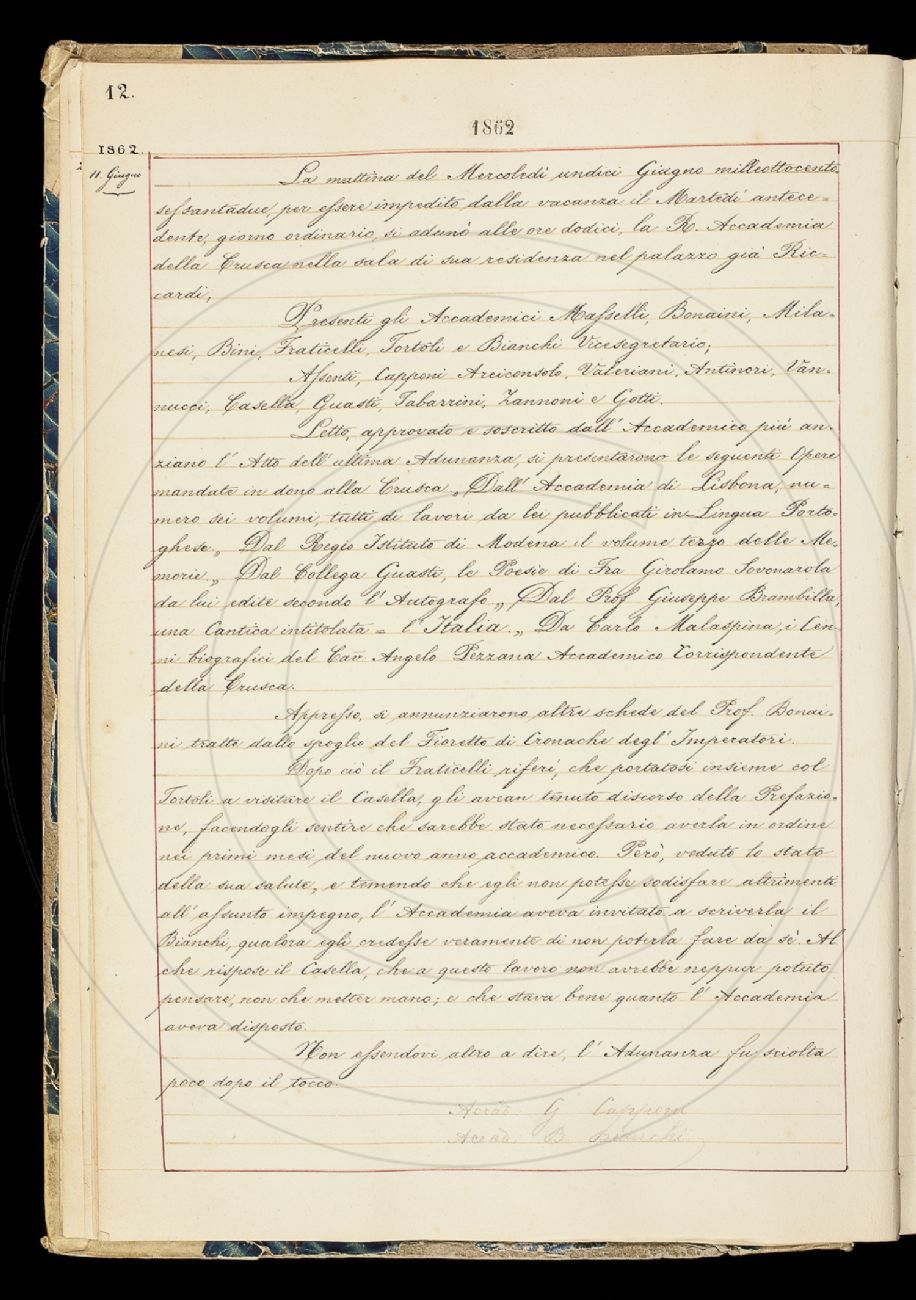 12.
1862
1862.
11. Giugno
La mattina del Mercoledì undici Giugno milleottocento
sessantadue, per essere impedito dalla vacanza il Martedì antece=
dente, giorno ordinario, si adunò alle ore dodici, la R. Accademia
della Crusca nella sala di sua residenza nel palazzo già Ric=
cardi,
Presenti gli Accademici Masselli, Bonaini, Mila=
nesi, Bini, Fraticelli, Tortoli e Bianchi Vicesegretario;
Assenti, Capponi Arciconsolo, Valeriani, Antinori, Van=
nucci, Casella, Guasti, Tabarrini, Zannoni e Gotti.
Letto, approvato e soscritto dall' Accademico più an=
ziano l' Atto dell' ultima Adunanza, si presentarono le seguenti Opere
mandate in dono alla Crusca „ Dall' Accademia di Lisbona, nu=
mero sei volumi, tutti di lavori da lei pubblicati in Lingua Porto=
ghese „ Dal Regio Istituto di Modena il volume terzo delle Me=
morie „ Dal Collega Guasti, le Poesie di Fra Girolamo Sovonarola
da lui edite secondo l' Autografo „ Dal Prof Giuseppe Brambilla,
una Cantica intitolata = l' Italia „ Da Carlo Malaspina, i Cen=
ni biografici del Cav. Angelo Pezzana Accademico Corrispondente
della Crusca.
Appresso, si annunziarono altre schede del Prof. Bonai=
ni tratte dallo spoglio del Fioretto di Cronache degl' Imperatori.
Dopo ciò il Fraticelli riferì, che portatosi insieme col
Tortoli a visitare il Casella, gli avean tenuto discorso della Prefazio=
ne, facendogli sentire che sarebbe stato necessario averla in ordine
nei primi mesi del nuovo anno accademico. Però, veduto lo stato
della sua salute, e temendo che egli non potesse sodisfare altrimenti
all' assunto impegno, l' Accademia aveva invitato a scriverla il
Bianchi, qualora egli credesse veramente di non poterla fare da sè. Al
che rispose il Casella, che a questo lavoro non avrebbe neppur potuto
pensare, non che metter mano; e che stava bene quanto l' Accademia
aveva disposto.
Non essendovi altro a dire, l' Adunanza fu sciolta
poco dopo il tocco.
Accad. G. Capponi
Accad. B. Bianchi